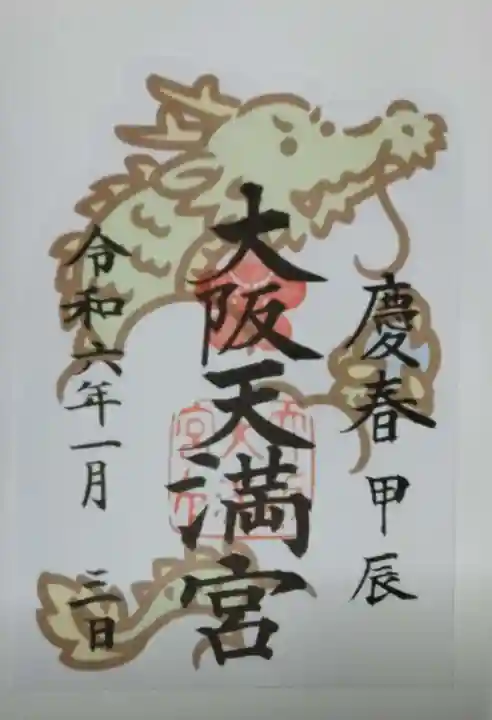 慶春 甲辰
大阪天満宮
令和六年一月 三日